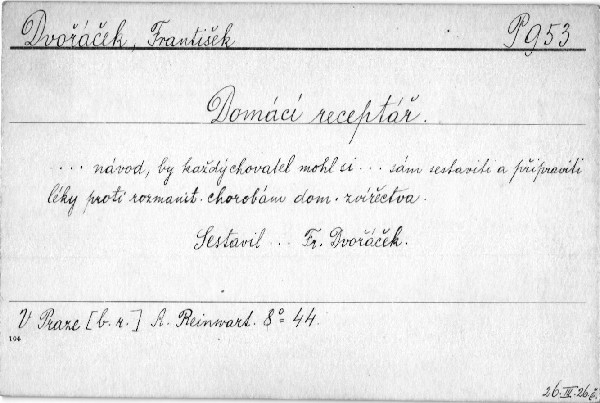 Dvořáček, František P 953
Domácí receptář.
... návod, by každý chovatel mohl si ... sám sestaviti a připraviti
léky proti rozmanit. chorobám dom. zvířectva.
Sestavil ... Fr. Dvořáček.
V Praze [b. r.] A. Reinwart. 8° 44.
104
26.IV.26 č.